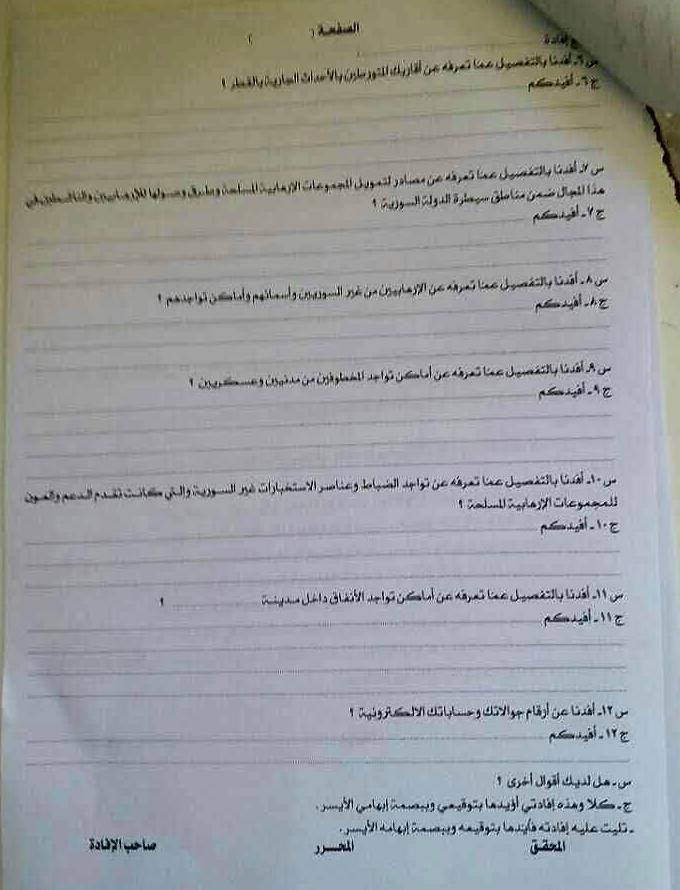 الصفحة (          )
إفادة
س٦ـ أفدنا بالتفصيل عما تعرفه عن أقاربك المتورطين بالأحداث الجارية بالقطر ؟
ج٦ـ أفيدكم
س٧ـ أفدنا بالتفصيل عما تعرفه عن مصادر لتمويل المجموعات الإرهابية المسلحة وطرق وصولها للإرهابيين والناشطين في
هذا المجال ضمن مناطق سيطرة الدولة السورية ؟
ج٧ـ أفيدكم
س٨ـ أفدنا بالتفصيل عما تعرفه عن الإرهابيين من غير السوريين وأسمائهم وأماكن تواجدهم ؟
ج٨ـ أفيدكم
س٩ـ أفدنا بالتفصيل عما تعرفه عن أماكن تواجد المخطوفين من مدنيين وعسكريين ؟
ج٩ـ أفيدكم
س١٠ـ أفدنا بالتفصيل عما تعرفه عن تواجد الضباط وعناصر الاستخبارات غير السورية والتي كانت تقدم الدعم والعون
للمجموعات الإرهابية المسلحة ؟
ج١٠ـ أفيدكم
س١١ـ أفدنا بالتفصيل عما تعرفه عن أماكن تواجد الأنفاق داخل مدينة .................. ؟
ج١١ـ أفيدكم
س١٢ـ أفدنا عن أرقام جوالاتك وحساباتك الالكترونية ؟
ج١٢ـ أفيدكم
س ـ هل لديك أقوال أخرى ؟
ج ـ كلا وهذه إفادتي أؤيدها بتوقيعي وببصمة إبهامي الأيسر.
ـ تليت عليه إفادته فأيدها بتوقيعه وببصمة إبهامه الأيسر.
المحقق          المحرر          صاحب الإفادة